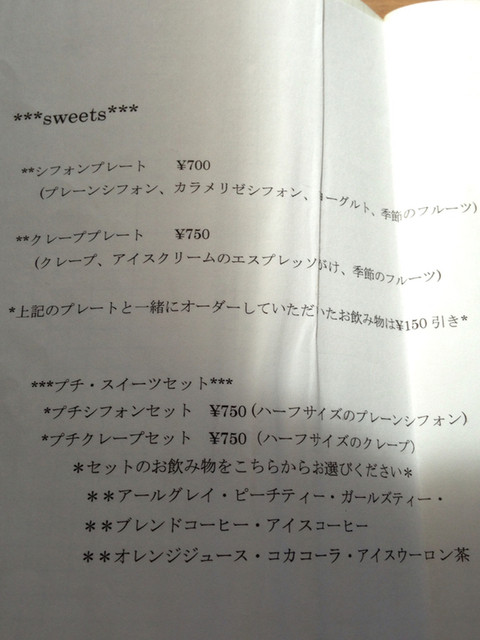 ***sweets***
**シフォンプレート ¥700
(プレーンシフォン、カラメリゼシフォン、ヨーグルト、季節のフルーツ)
**クレーププレート ¥750
(クレープ、アイスクリームのエスプレッソがけ、季節のフルーツ)
*上記のプレートと一緒にオーダーしていただいたお飲み物は¥150引き*
***プチ・スイーツセット***
*プチシフォンセット ¥750 (ハーフサイズのプレーンシフォン)
*プチクレープセット ¥750 (ハーフサイズのクレープ)
*セットのお飲み物をこちらからお選びください*
**アールグレイ・ピーチティー・ガールズティー・
**ブレンドコーヒー・アイスコーヒー
**オレンジジュース・コカコーラ・アイスウーロン茶